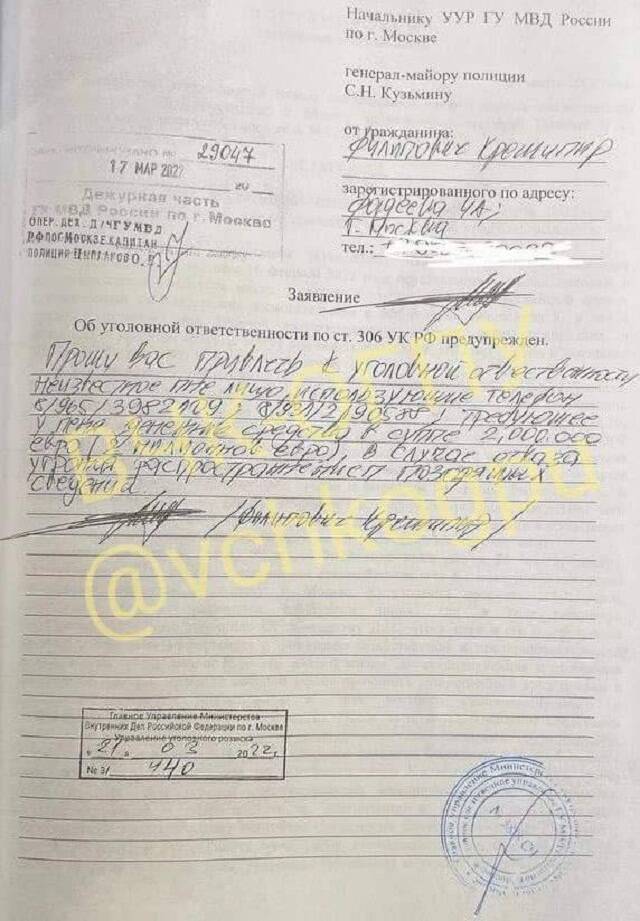 Начальнику УУР ГУ МВД России
по г. Москве
генерал-майору полиции
С.Н. Кузьмину
от гражданина:
Филипович Крешимир
зарегистрированного по адресу:
Фадеева
г. Москва
тел.:
29047
17 МАР 2022
Дежурная часть
ГУ МВД России по г. Москве
ПОЛИЦИИ
Заявление
Об уголовной ответственности по ст. 306 УК РФ предупрежден.
Прошу Вас привлечь к уголовной ответственности
неизвестное мне лицо, использующие телефон
требующее
у меня денежные средства в сумме 2,000.000
евро (2 миллионов евро), в случае отказа
угрожая распространением позорящих
сведений
Филипович Крешимир
ВЧК-ОГПУ
@vchkogpu
Главное Управление Министерства
Внутренних Дел Российской Федерации по г. Москве
Управление уголовного розыска
" 21 " 03 2022 г.
№ 3/ 440